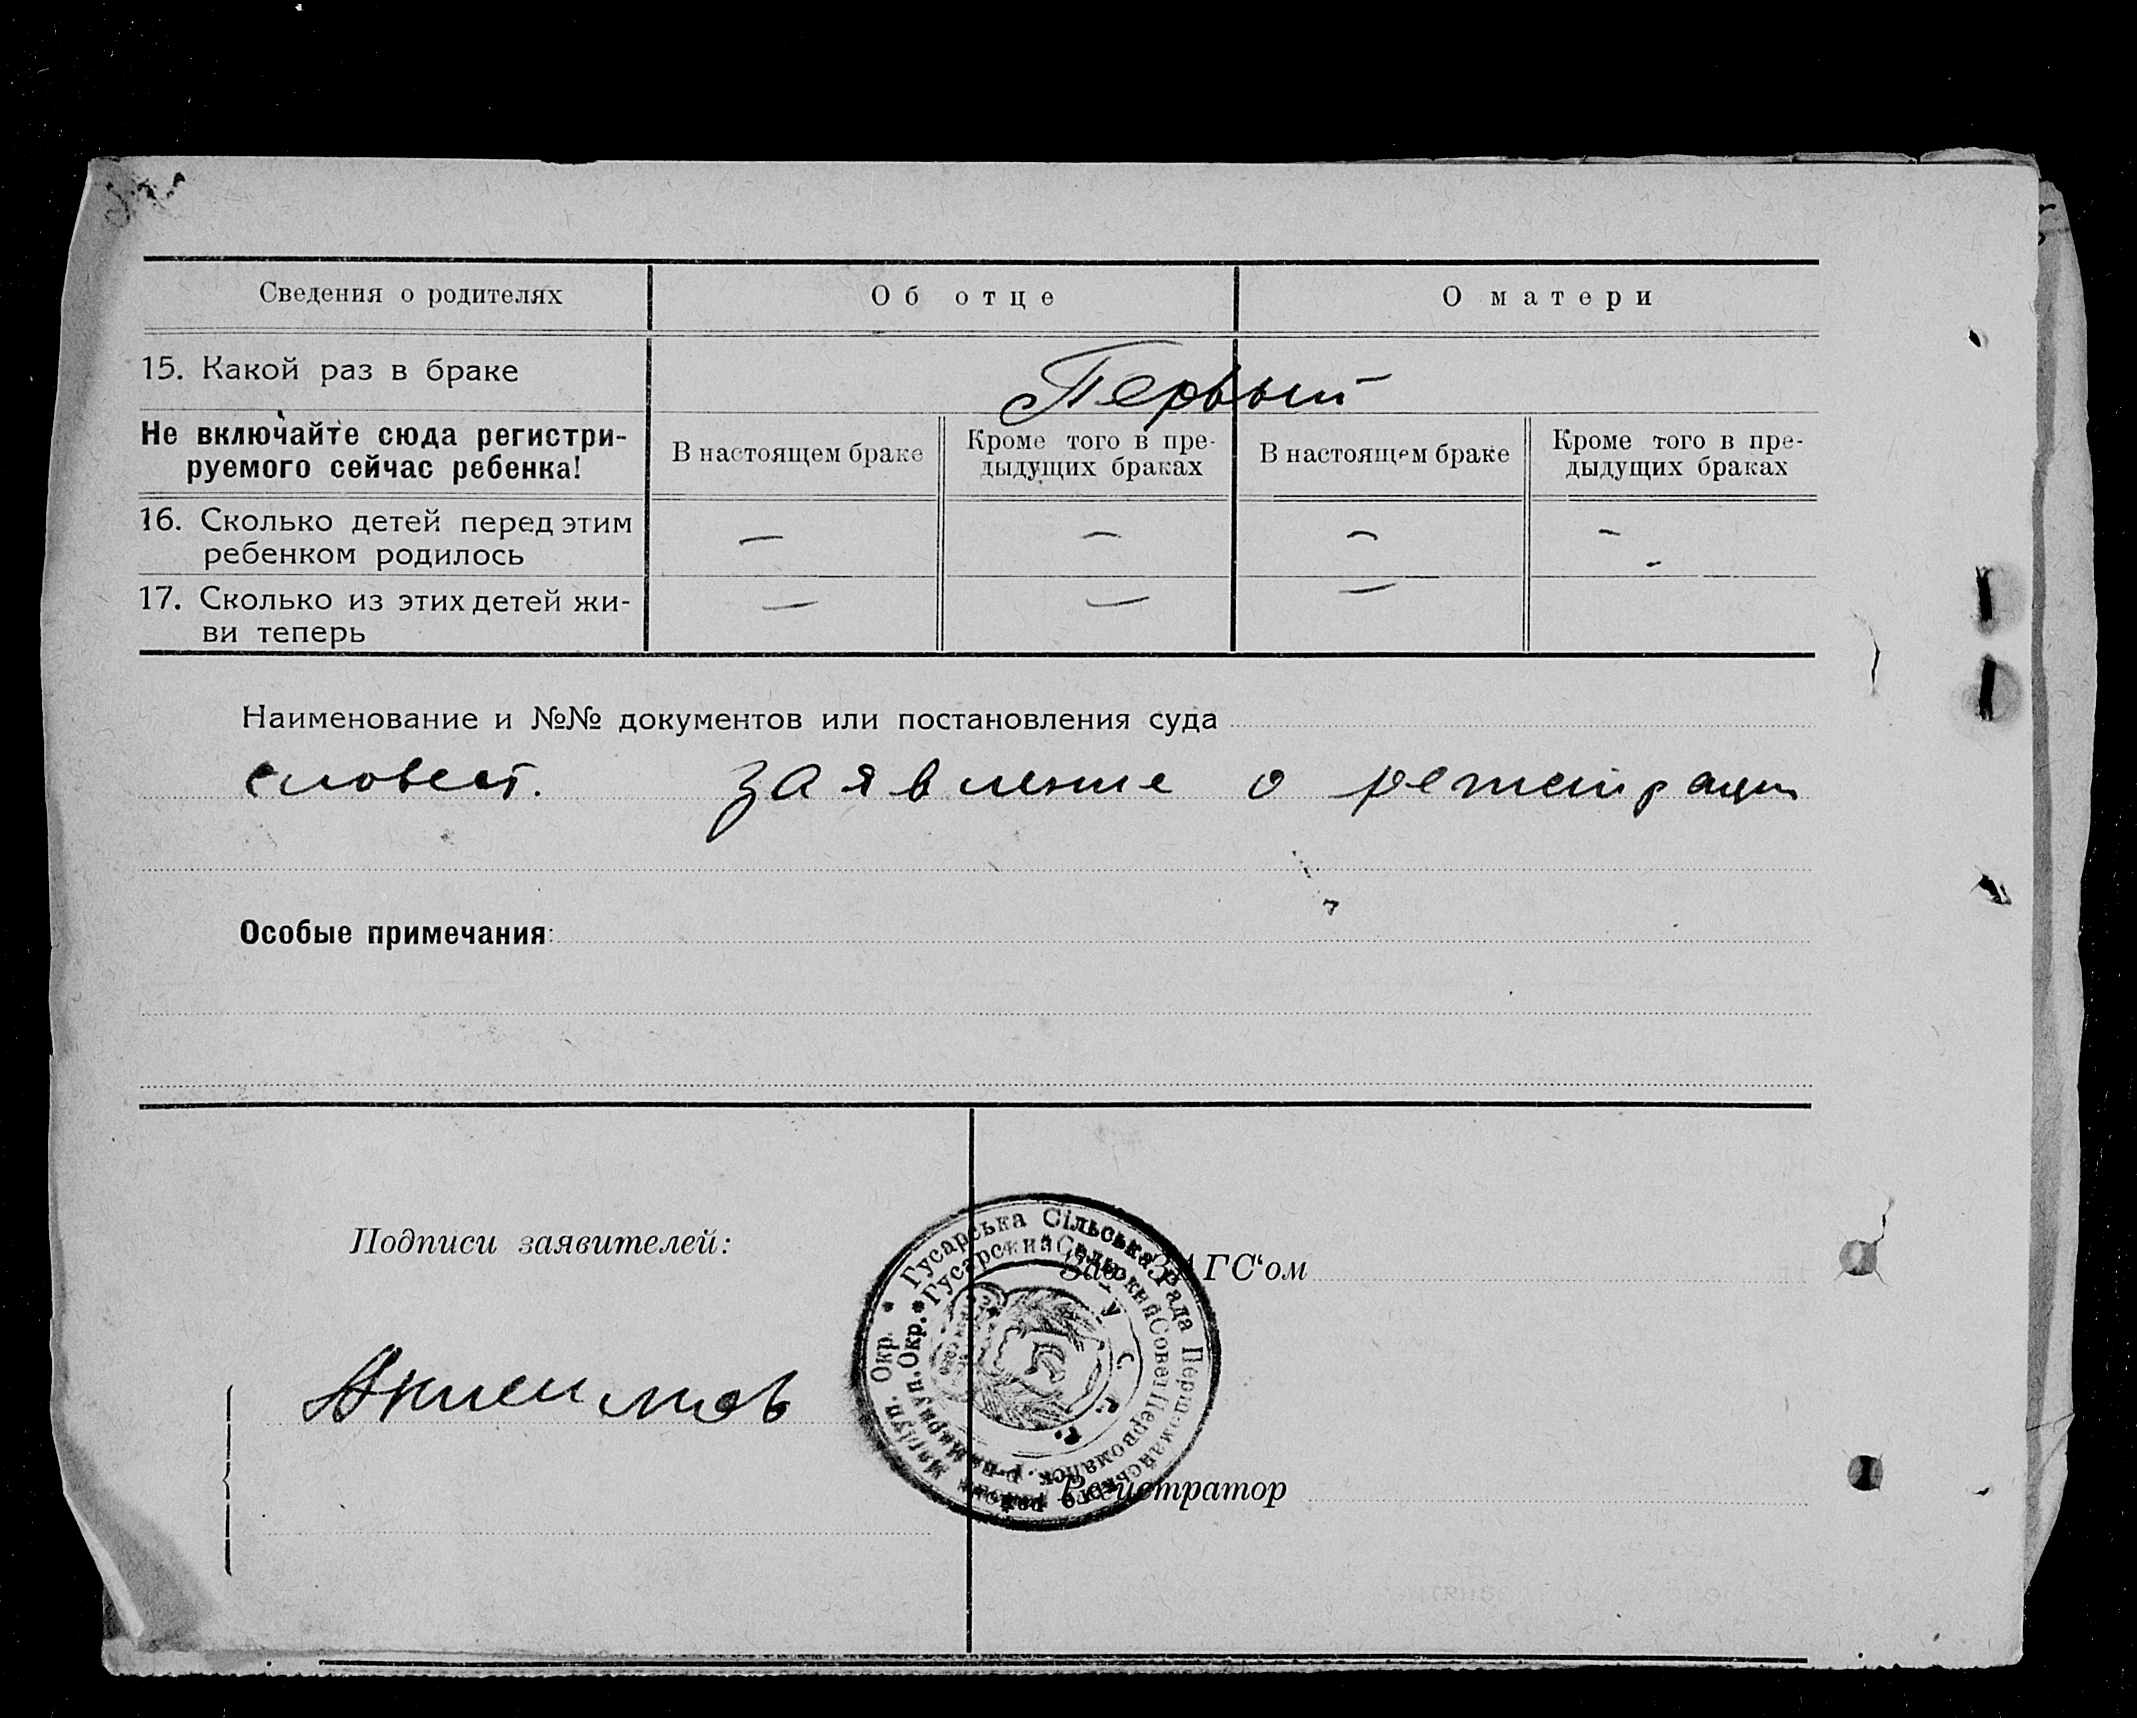 Сведения о родителях
Об отце
О матери
15. Какой раз в браке
Первый
Не включайте сюда регистри-
руемого сейчас ребенка!
В настоящем браке
Кроме того в пре-
дыдущих браках
В настоящем браке
Кроме того в пре-
дыдущих браках
16. Сколько детей перед этим
ребенком родилось
— — — —
17. Сколько из этих детей жи-
ви теперь
— — — -
Наименование и №№ документов или постановления суда
словест. заявление о регистрации
Особые примечания:
Подписи заявителей:
Анисимов
Зав. ЗАГС‘ом
Регистратор
* Гусарська Сільська Рада Першомайського району Маріуп. Окр.
* Гусарский Сельский Совет Первомайск. р-на Мариуп. Окр.
У. С. Р. Р.